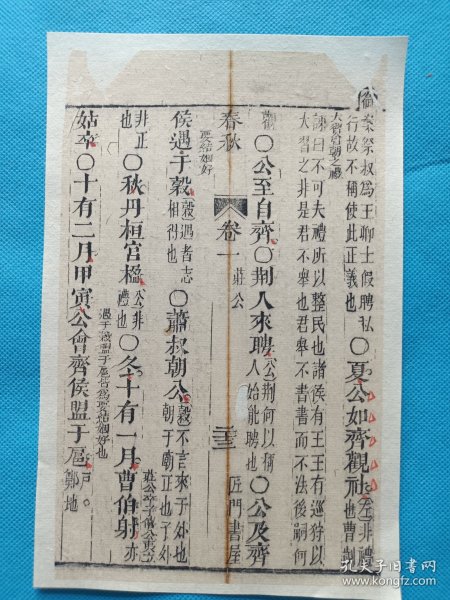 秦祭叔為王卿士假聘私
行故不稱使此正義也
○夏公如齊觀社
左非禮
也曹劌
諫曰不可夫禮所以整民也諸侯有王王有巡狩以
大習會朝之禮
大習之非是君不舉也君舉不書書而不法後嗣何
觀○公至自齊○荆人來聘
公荆何以稱
人始能聘也
○公及齊
春秋 卷一 莊公 二三 匠門書屋
要結姻好
侯遇于穀
穀遇者志
相得也
○蕭叔朝公
穀不言來于外也
朝于廟正也于外
非正
也
○秋丹桓宮楹
公非
禮也
○冬十有一月曹伯射
亦
遇于穀盟于扈皆為要結姻好也
莊公卒子僖公夷立
姑卒○十有二月甲寅公會齊侯盟于扈
戶。
鄭地
孔夫子旧书网
www.kongfz.com